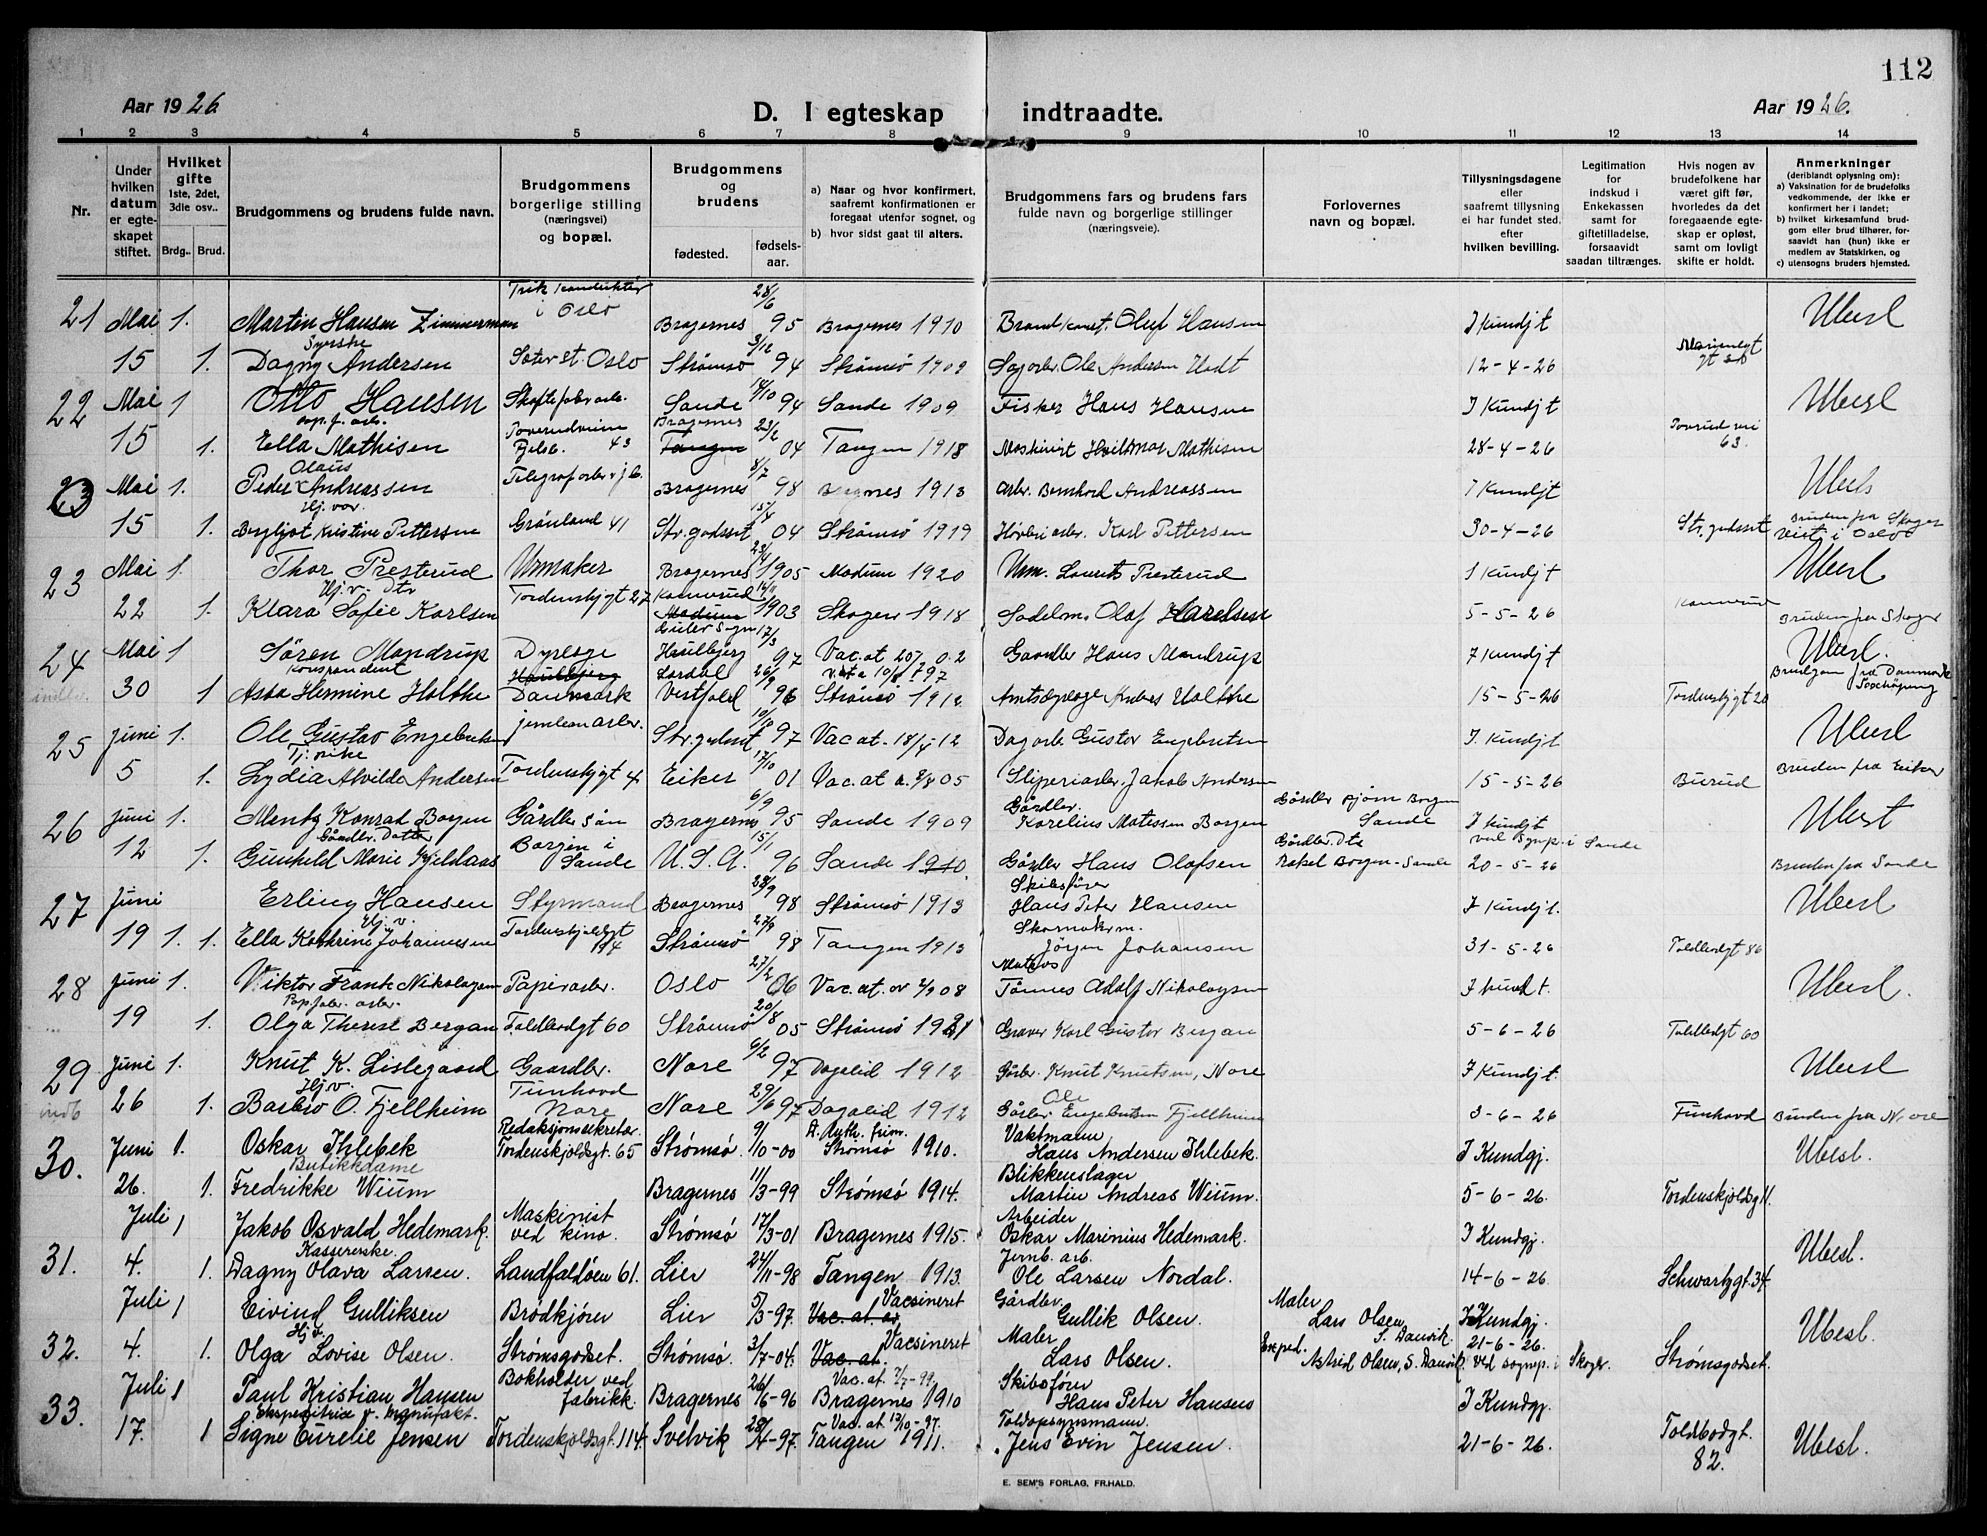 112
Aar 1926.
D. I egteskap indtraadte.
Aar 1926.
1 2 3 4 5 6 7 8 9 10 11 12 13 14
Nr.
Under hvilken datum er egteskapet stiftet.
Hvilket gifte 1ste, 2det, 3die osv..
Brdg.. Brud.
Brudgommens og brudens fulde navn.
Brudgommens borgerlige stilling (næringsvei) og bopæl.
Brudgommens og brudens
fødested. fødselsaar.
a) Naar og hvor konfirmert, saafremt konfirmationen er foregaat utenfor sognet, og
b) hvor sidst gaat til alters.
Brudgommens fars og brudens fars fulde navn og borgerlige stillinger (næringsveie).
Forlovernes navn og bopæl.
Tillysningsdagene eller saafremt tillysning ei har fundet sted, efter hvilken bevilling.
Legitimation for indskud i Enkekassen samt for giftetilladelse, forsaavidt saadan tiltrænges.
Hvis nogen av brudefolkene har været gift før, hvorledes da det foregaaende egteskap er opløst, samt om lovligt skifte er holdt.
Anmerkninger (deriblandt oplysning om):
a) Vaksination for de brudefolks vedkommende, der ikke er konfirmert her i landet;
b) hvilket kirkesamfund brudgom eller brud tilhører, forsaavidt han (hun) ikke er medlem av Statskirken, og
c) utensogns bruders hjemsted.
21 Mai 1. Martin Hansen Zimmerman i Oslo Bragernes 28/6 95 Bragernes 1910 Oluf Hansen I Kundjt Ubesl
Syerske
15 1. Dagny Andersen Oslo Strømsø 3/12 94 Strømsø 1909 Sagarb. Ole Andersen 12-4-26
22 Mai 1 Otto Hansen Sande 14/10 94 Sande 1909 Fisker Hans Hansen I Kundjt Ubesl
Pap. f. arb.
15 1. Ella Mathisen 43 Bragernes Tangen 23/2 04 Tangen 1918 Maskinist Hjalmar Mathisen 28-4-26 63.
23 Mai 1. Peder Olaus Andreassen Telegrafarb. Bragernes 8/7 98 Bragernes 1913 Arb. Bernhard Andreassen I Kundjt Ubesl
Hj. v. or.
15 1. Bergljot Kristine Pettersen Grønland 41 Str. godset 04 Strømsø 1919 Karl Pettersen 30-4-26 Str. godset Bruden fra Skoger viet i Oslo
23 Mai 1. Thor Presterud Urmaker Bragernes 1905 Modum 1920 Urm. Laurits Presterud I Kundjt Ubesl
Hj. v. Dtr
22 1. Klara Sofie Karlsen Tordenskjgt 27 Modum 1903 Skoger 1918 Sadelm. Olaf Karelsen 5-5-26 Bruden fra Skoger
24 Mai 1 Søren Mandrup Dyrlæge 17/3 97 Vac. at 20/7 02 Gaardbr Hans Mandrup I Kundjt Ubesl.
Korspondent
30 1 Asta Hermine Holthe Danmark Vestfold 26/9 96 Strømsø 1912 Amtsdyrlæge Anders Holthe 15-5-26 Tordenskjgt 20 Brudgom fra Danmark
25 Juni 1. Ole Gustav Engebretsen Jernbanearb. Str. godset 10/10 97 Vac at. 18/4-12 Dagarb. Gustav Engebretsen I. Kundjt Ubesl
Tj. pike
5 1. Lydia Alvilde Andersen Tordenskjgt 4 Eiker 17/10 01 Vac. at a. 9/8 05 Sliperiarb. Jakob Andersen 15-5-26 Burud Bruden fra Eiker
26 Juni 1. Mentz Konrad Borgen Gårdbr. søn Bragernes 6/9 95 Sande 1909 Gårdbr. Karelius Matessen Borgen Gårdbr Bjørn Borgen Sande I Kundjt Ubesl
Gårdbr. Datter
12 1. Gunhild Marie Kjeldaas Borgen i Sande U.S.A. 15/1 96 Sande 1910. Gårdbr Hans Olafsen Gårdbr. Dtr Rakel Borgen - Sande ved Sognep. i Sande 20-5-26 Bruden fra Sande
27 Juni Erling Hansen Styrmand Bragernes 28/9 98 Strømsø 1913 Skibsfører Hans Peter Hansen I Kundjt. Ubesl
Hj. v.
19 1. 1. Ella Kathrine Johannesen Tordenskjoldsgt 114 Strømsø 27/9 98 Tangen 1913 Skomakerm. Jørgen Johansen 31-5-26 Toldbodgt 86
28 Juni 1. Viktor Frank Nikolaysen Papirarb. Oslo 27/2 06 Vac. at. av 4/9 08 Matros Tønnes Adolf Nikolaysen I Kundt. Ubesl.
Pap. fabr. arbr.
19 1. Olga Therese Bergan Toldbodgt 60 Strømsø 20/8 05 Strømsø 1921 Graver Karl Gustav Bergan 5-6-26 Toldbodgt 60
29 Juni 1. Knut K. Lislegaard Gaardbr. Nore 6/2 97 Dagalid 1912 Gårbr. Knut Knutsen, Nore I Kundjt. Ubesl
Hj v.
26 1. Barbro O. Fjellheim Tunhovd Nore Nore 29/6 97 Dagalid 1912 Gårbr Ole Engebretsen Fjellheim 3-6-26 Tunhovd Bruden fra Nore
30. Juni 1. Oskar Ihlebek Redaksjonssekretær. Tordenskjoldsgt. 65 Strømsø 9/10-00 Strømsø 1910. Vaktmann Hans Andersen Ihlebek. I Kundgj. Ubesl.
Butikkdame
26. 1. Fredrikke Wium Bragernes 11/3-99 Strømsø 1914. Blikkenslager Martin Andreas Wium. 5-6-26.
31. Juli 1 Jakob Osvald Hedemark. Maskinist ved kino. Strømsø 17/3-01 Bragernes 1915. Arbeider Oskar Marinius Hedemark. I Kundgj. Ubesl.
Kassererske.
4. 1. Dagny Olava Larsen. Landfaldøen 61. Lier 24/11-98 Tangen 1913. Jernb. arb. Ole Larsen Nordal. 14-6-26. Schwartzgt. 34.
32. Juli 1 Eivind Gulliksen Brødkjører Lier 5/3-97. Vac. at. av Vacsineret Gårdbr. Gullik Olsen. Maler Lars Olsen, S. Danvik. I Kundgj. Ubesl.
Hj v.
4. 1. Olga Lovise Olsen. Strømsgodset. Strømsø. 3/7-04. Vac. at. Vacsineret Maler Lars Olsen. Exped. Astrid Olsen, S. Danvik. 21-6-26. ved sognep. i Skoger. Strømsgodset.
33. Juli 1 Paul Kristian Hansen Bokholder ved fabrikk. Bragernes 26/6-96 Vac. at 7/7-99 Bragernes 1910 Skibsfører Hans Peter Hansen I Kundgj. Ubesl.
Ekspeditrise v. manufakt.
17. 1 Signe Eurelie Jensen Tordenskjoldsgt. 114. Svelvik 28/4-97. Vac. at 13/10-97. Tangen 1911. Toldopsynsmann. Jens Evin Jensen. 21-6-26. Toldbodgt. 82.
E. SEM'S FORLAG, FR.HALD.